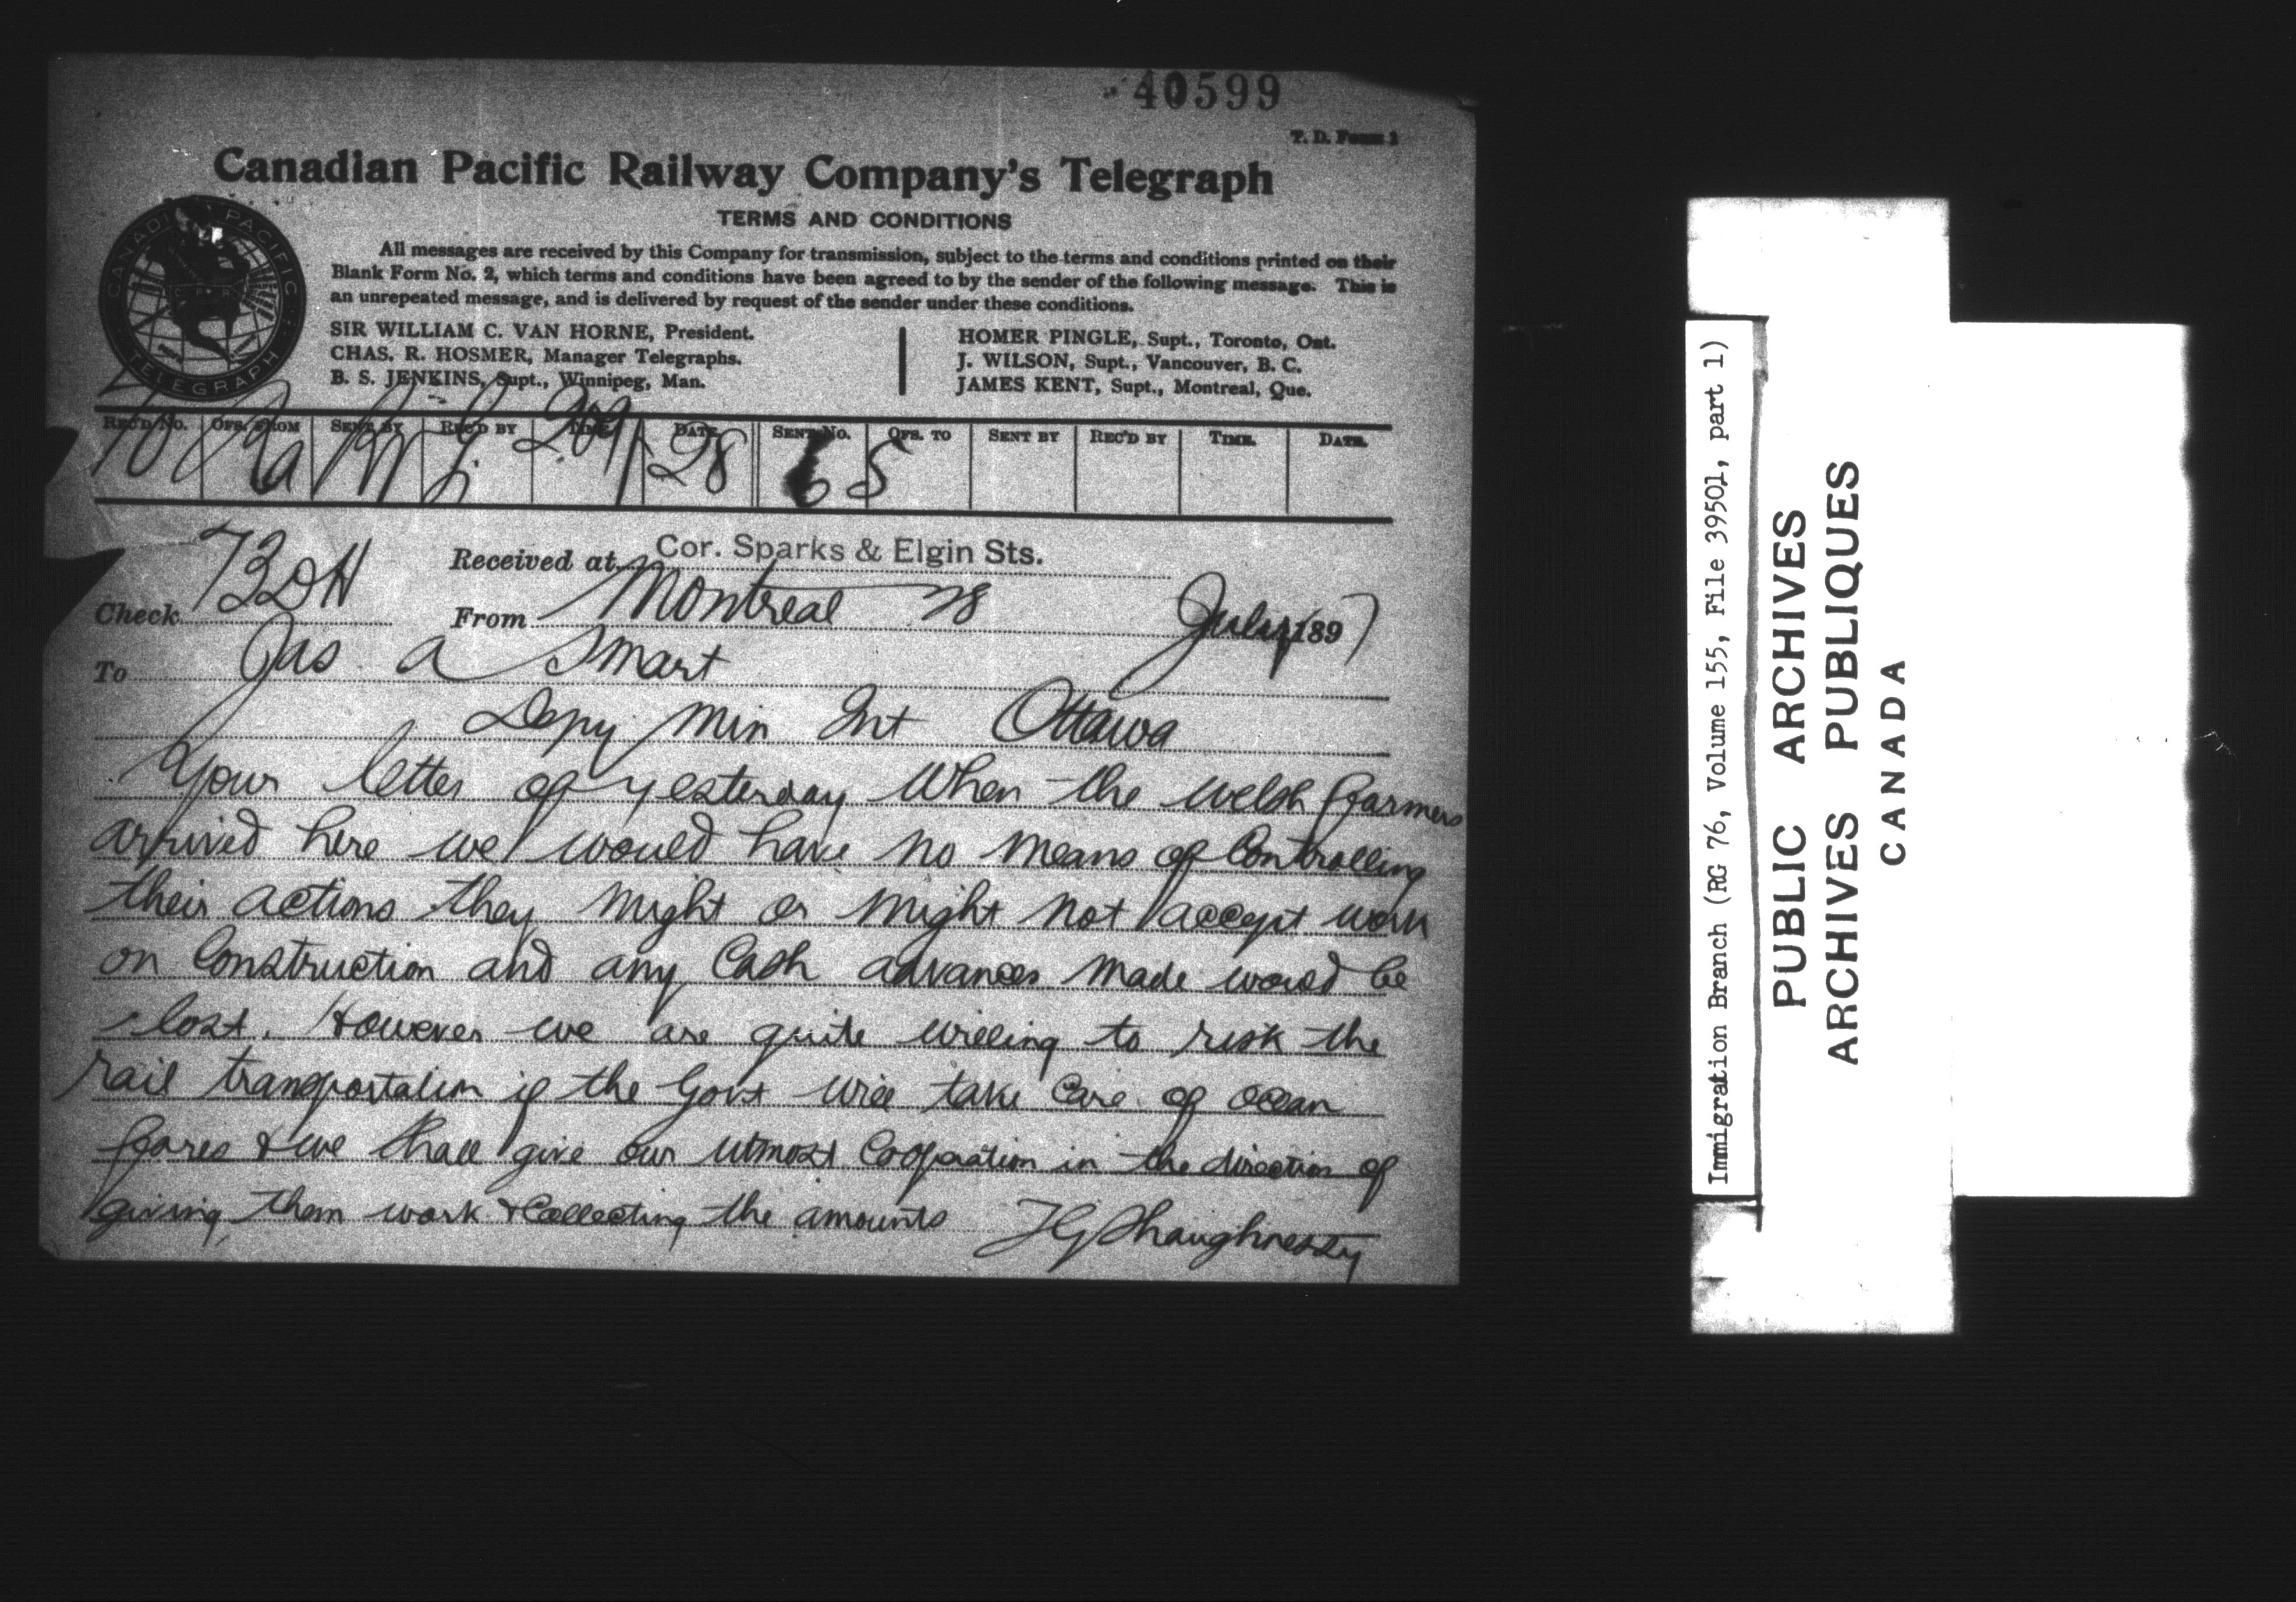 40599
T. D. Form 1
Canadian Pacific Railway Company's Telegraph
TERMS AND CONDITIONS
All messages are received by this Company for transmission, subject to the terms and conditions printed on their
Blank Form No. 2, which terms and conditions have been agreed to by the sender of the following message. This is
an unrepeated message, and is delivered by request of the sender under these conditions.
SIR WILLIAM C. VAN HORNE, President.
CHAS. R. HOSMER, Manager Telegraphs.
B. S. JENKINS, Supt., Winnipeg, Man.
HOMER PINGLE, Supt., Toronto, Ont.
J. WILSON, Supt., Vancouver, B. C.
JAMES KENT, Supt., Montreal, Que.
CANADIAN PACIFIC
TELEGRAPH
REC'D NO. OFS. FROM SENT BY REC'D BY TIME DATE SENT NO. OFS. TO SENT BY REC'D BY TIME. DATE.
28
Received at Cor. Sparks & Elgin Sts.
Check 73 DH From Montreal 28 July 1897
To Jas a Smart
Depy Min Int Ottawa
Your letter of yesterday When the welsh farmers
arrived here we would have no means of Controlling
their actions they might or might not accept work
on Construction and any Cash advances made would be
lost. However we are quite willing to risk the
rail transportation if the Govt will take care of ocean
fares & we shall give our utmost Cooperation in the direction of
giving them work & Collecting the amounts TG Shaughnessy
Immigration Branch (RG 76, Volume 155, File 39501, part 1)
PUBLIC ARCHIVES
ARCHIVES PUBLIQUES
CANADA